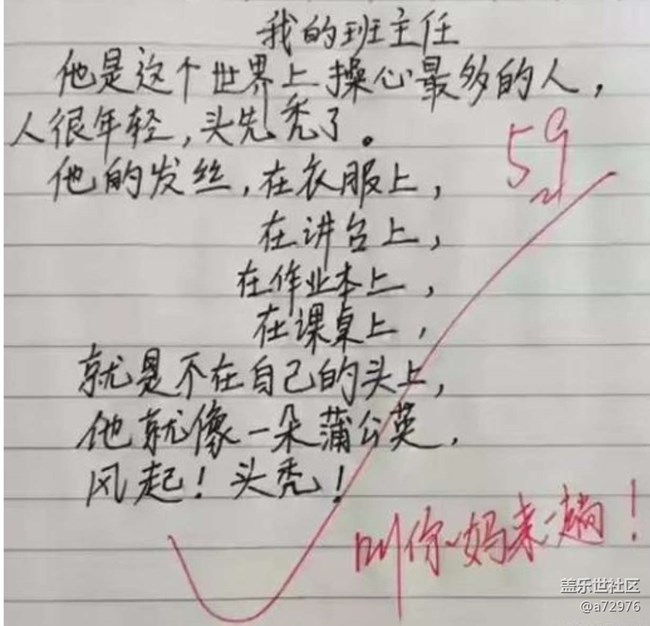 我的班主任
他是这个世界上操心最多的人，
人很年轻，头先秃了。
他的发丝，在衣服上，
59
在讲台上，
在作业本上，
在课桌上，
就是不在自己的头上，
他就像一朵蒲公英，
风起！头秃！
叫你妈来一趟！
盖乐世社区
@a72976